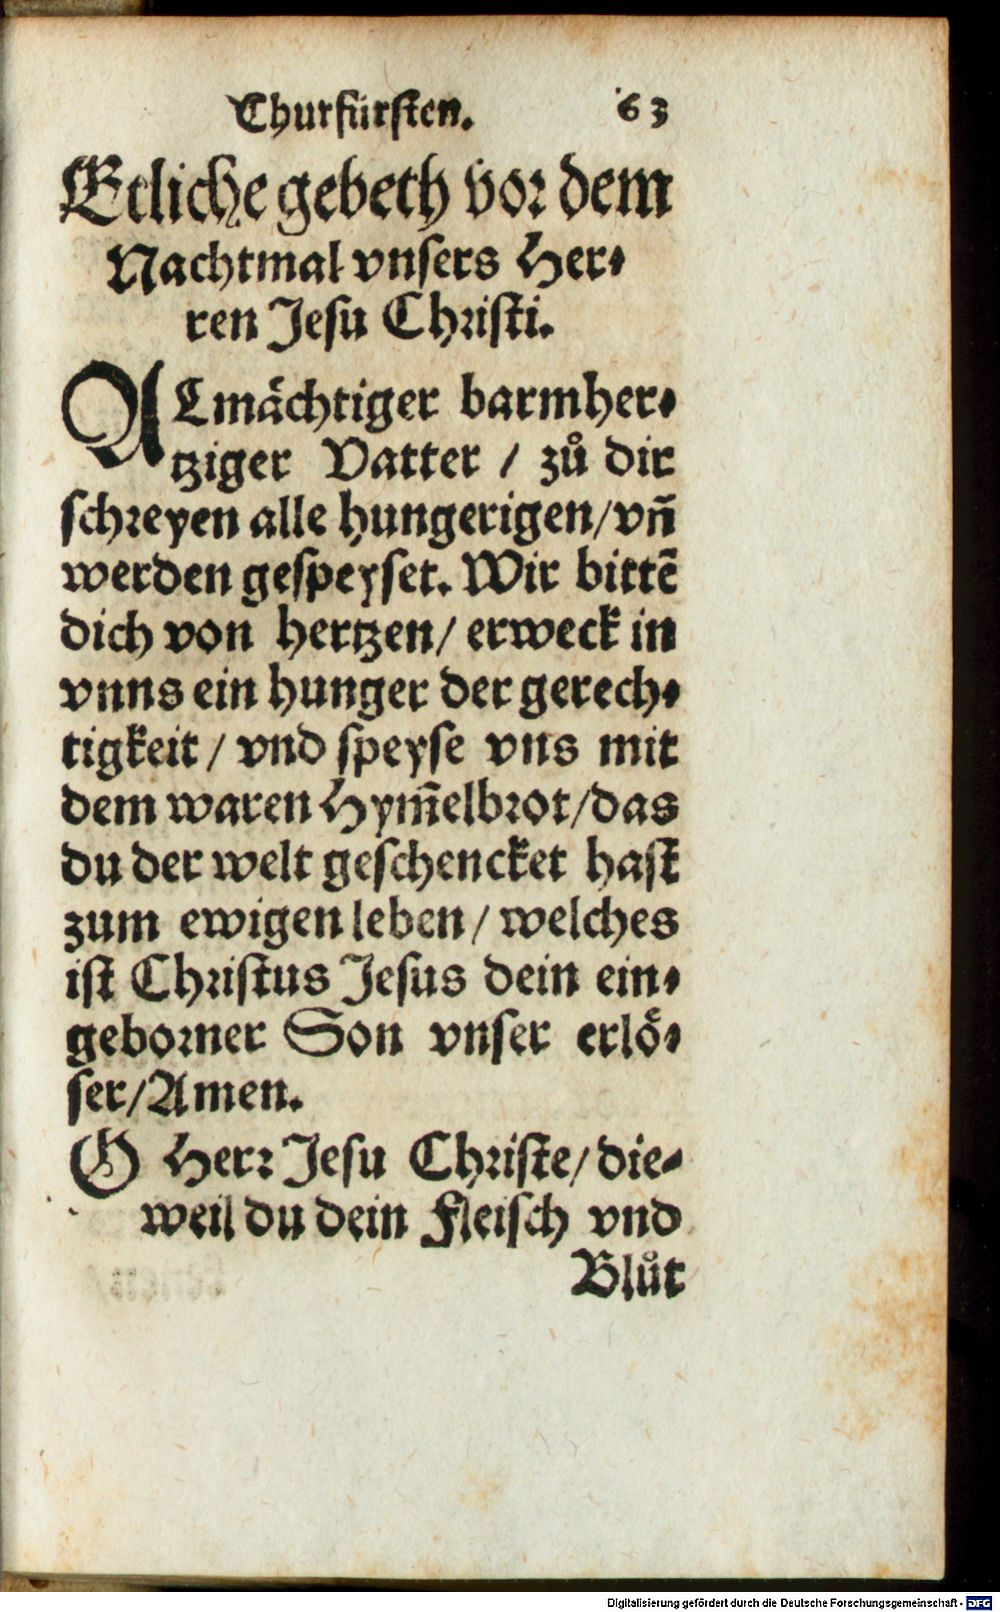 Churfürsten. 63
Etliche gebeth vor dem
Nachtmal vnsers Her⸗
ren Jesu Christi.
ALmächtiger barmher⸗
tziger Vatter / zů dir
schreyen alle hungerigen/vñ
werden gespeyset. Wir bittẽ
dich von hertzen/ erweck in
vnns ein hunger der gerech⸗
tigkeit / vnd speyse vns mit
dem waren Hym̃elbrot/das
du der welt geschencket hast
zum ewigen leben / welches
ist Christus Jesus dein ein⸗
geborner Son vnser erlö⸗
ser/Amen.
O Herr Jesu Christe/ die⸗
weil du dein Fleisch vnd
Blůt
Digitalisierung gefördert durch die Deutsche Forschungsgemeinschaft - DFG